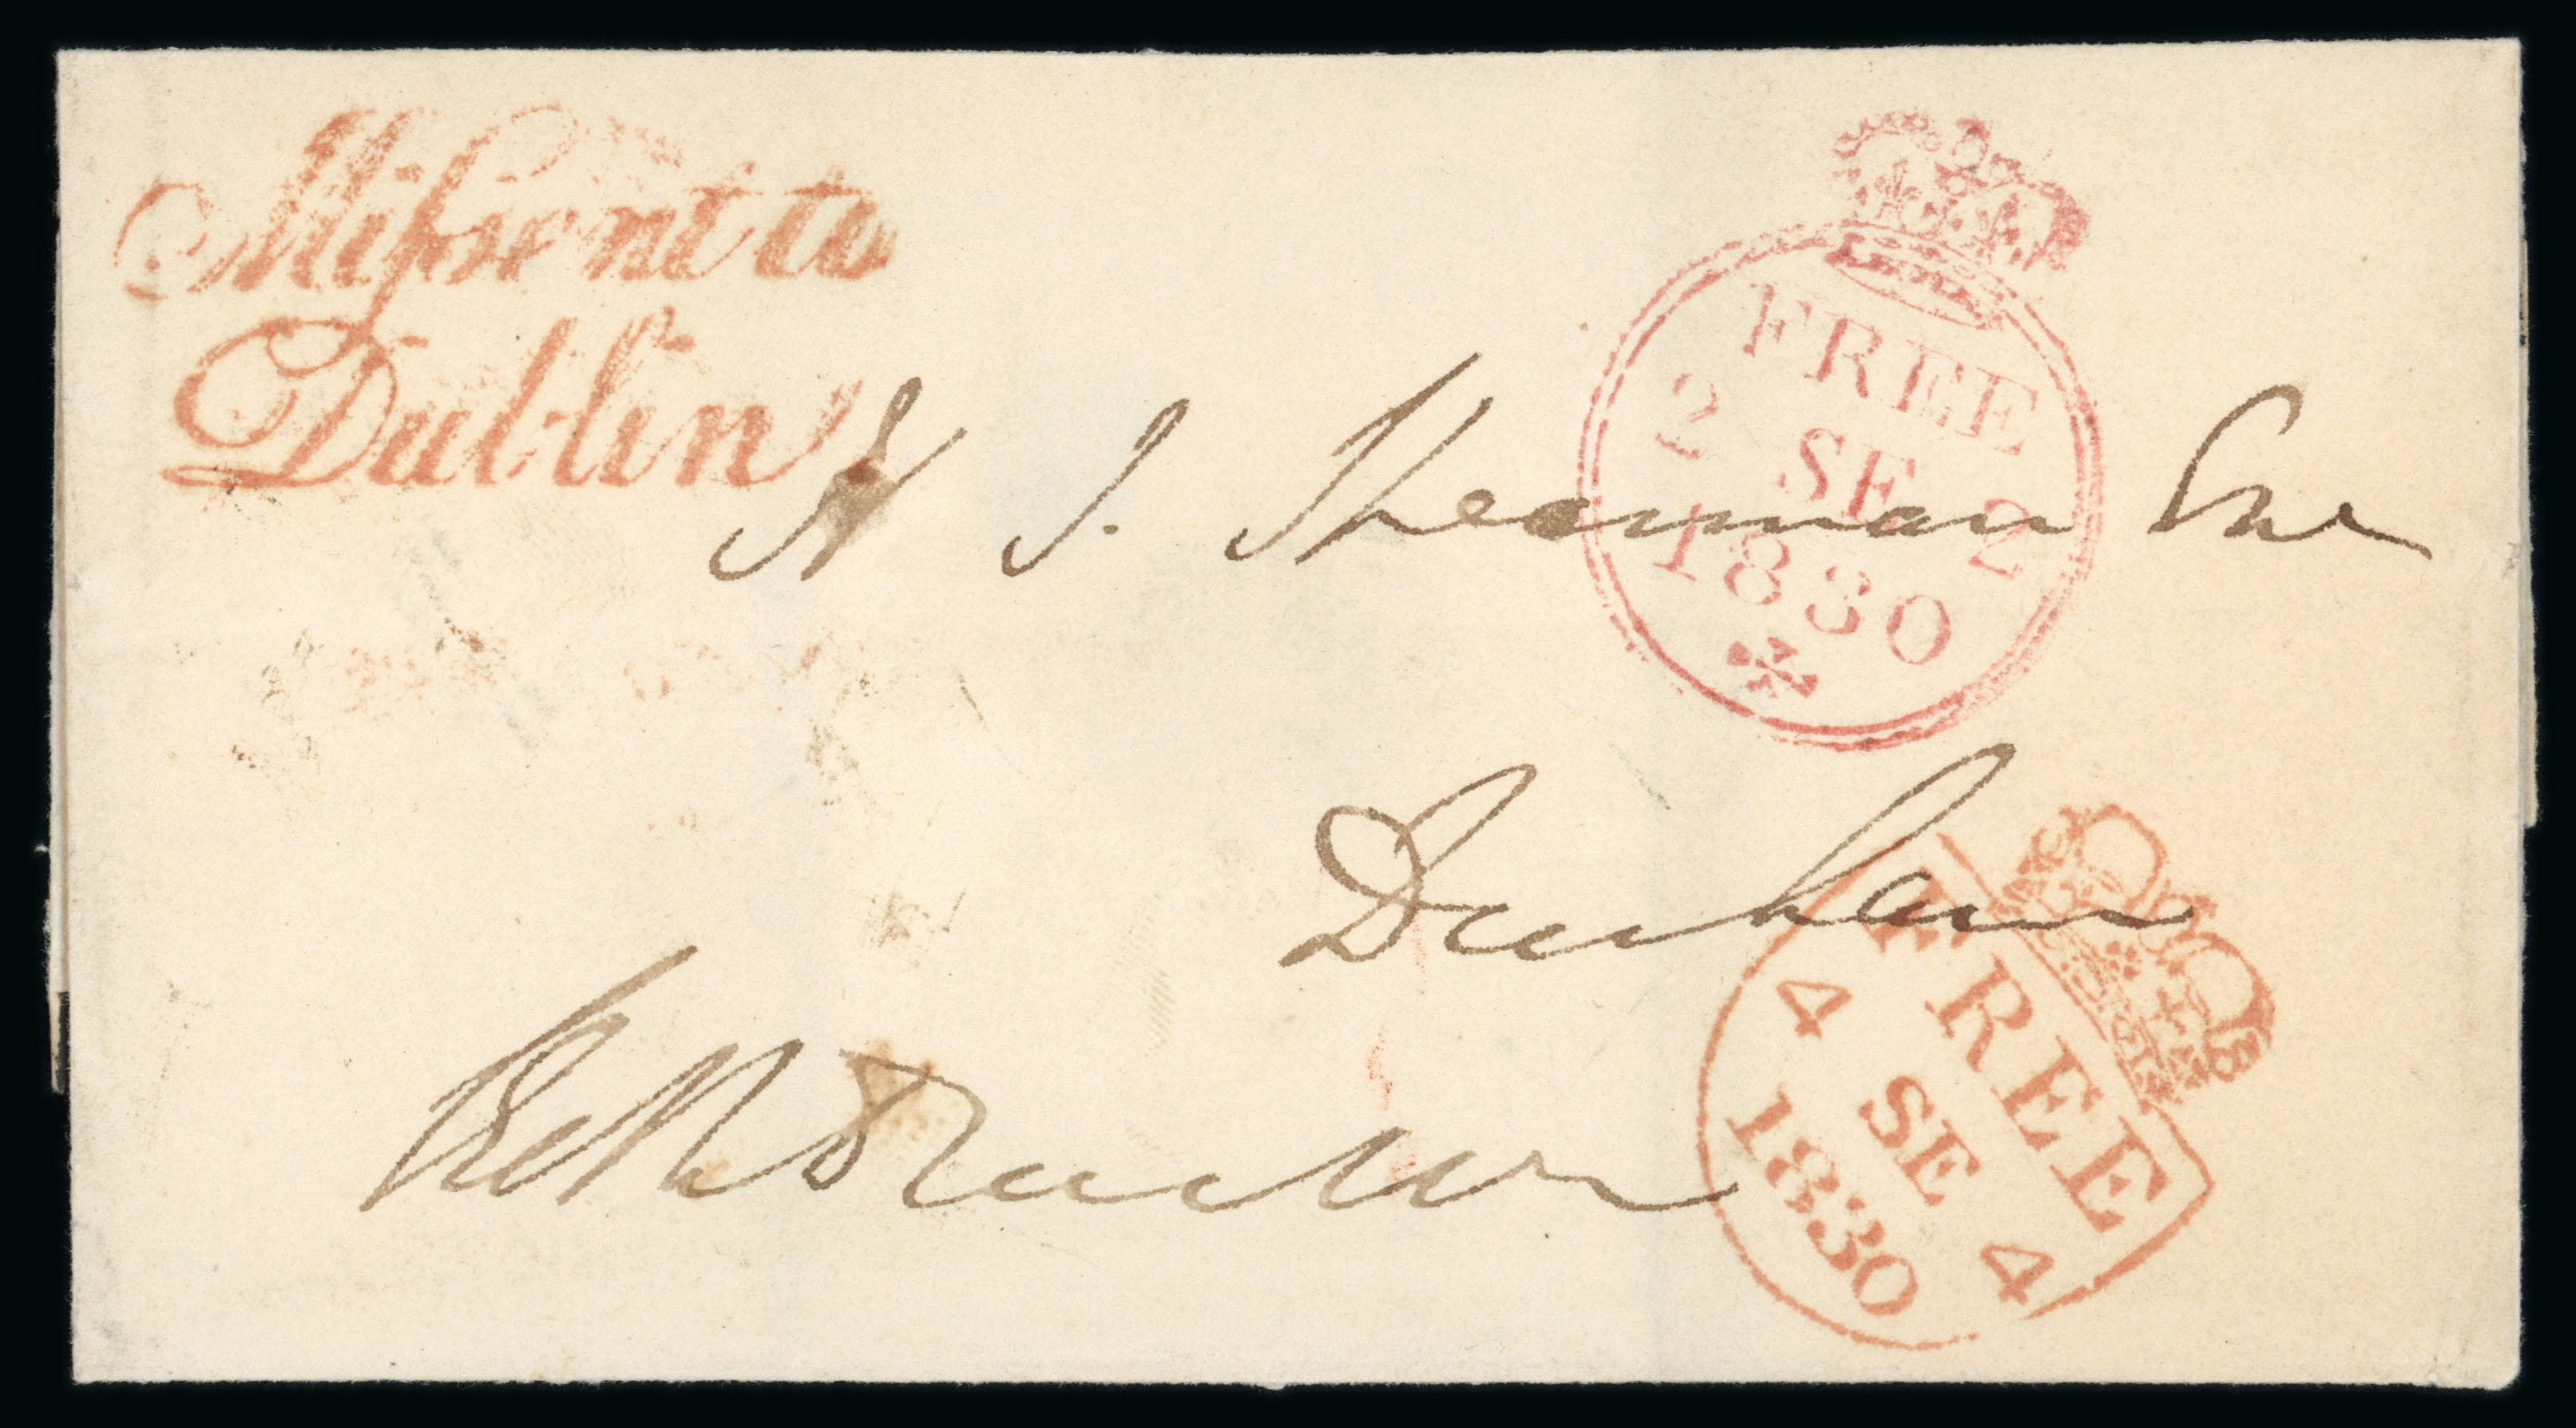 Missent to
Dublin
FREE
2 SE 2
1830
J. Shearman
Dunham
FREE
4 SE 4
1830